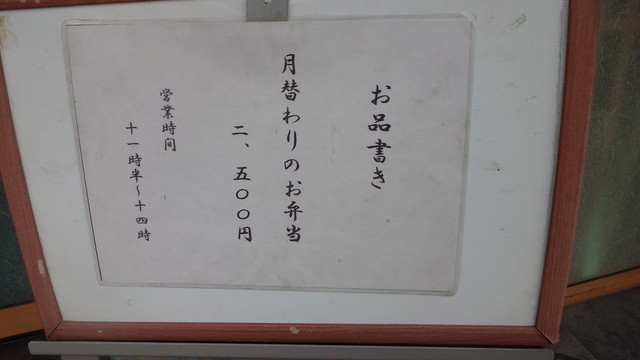 お品書き
月替わりのお弁当
二、五〇〇円
営業時間
十一時半～十四時